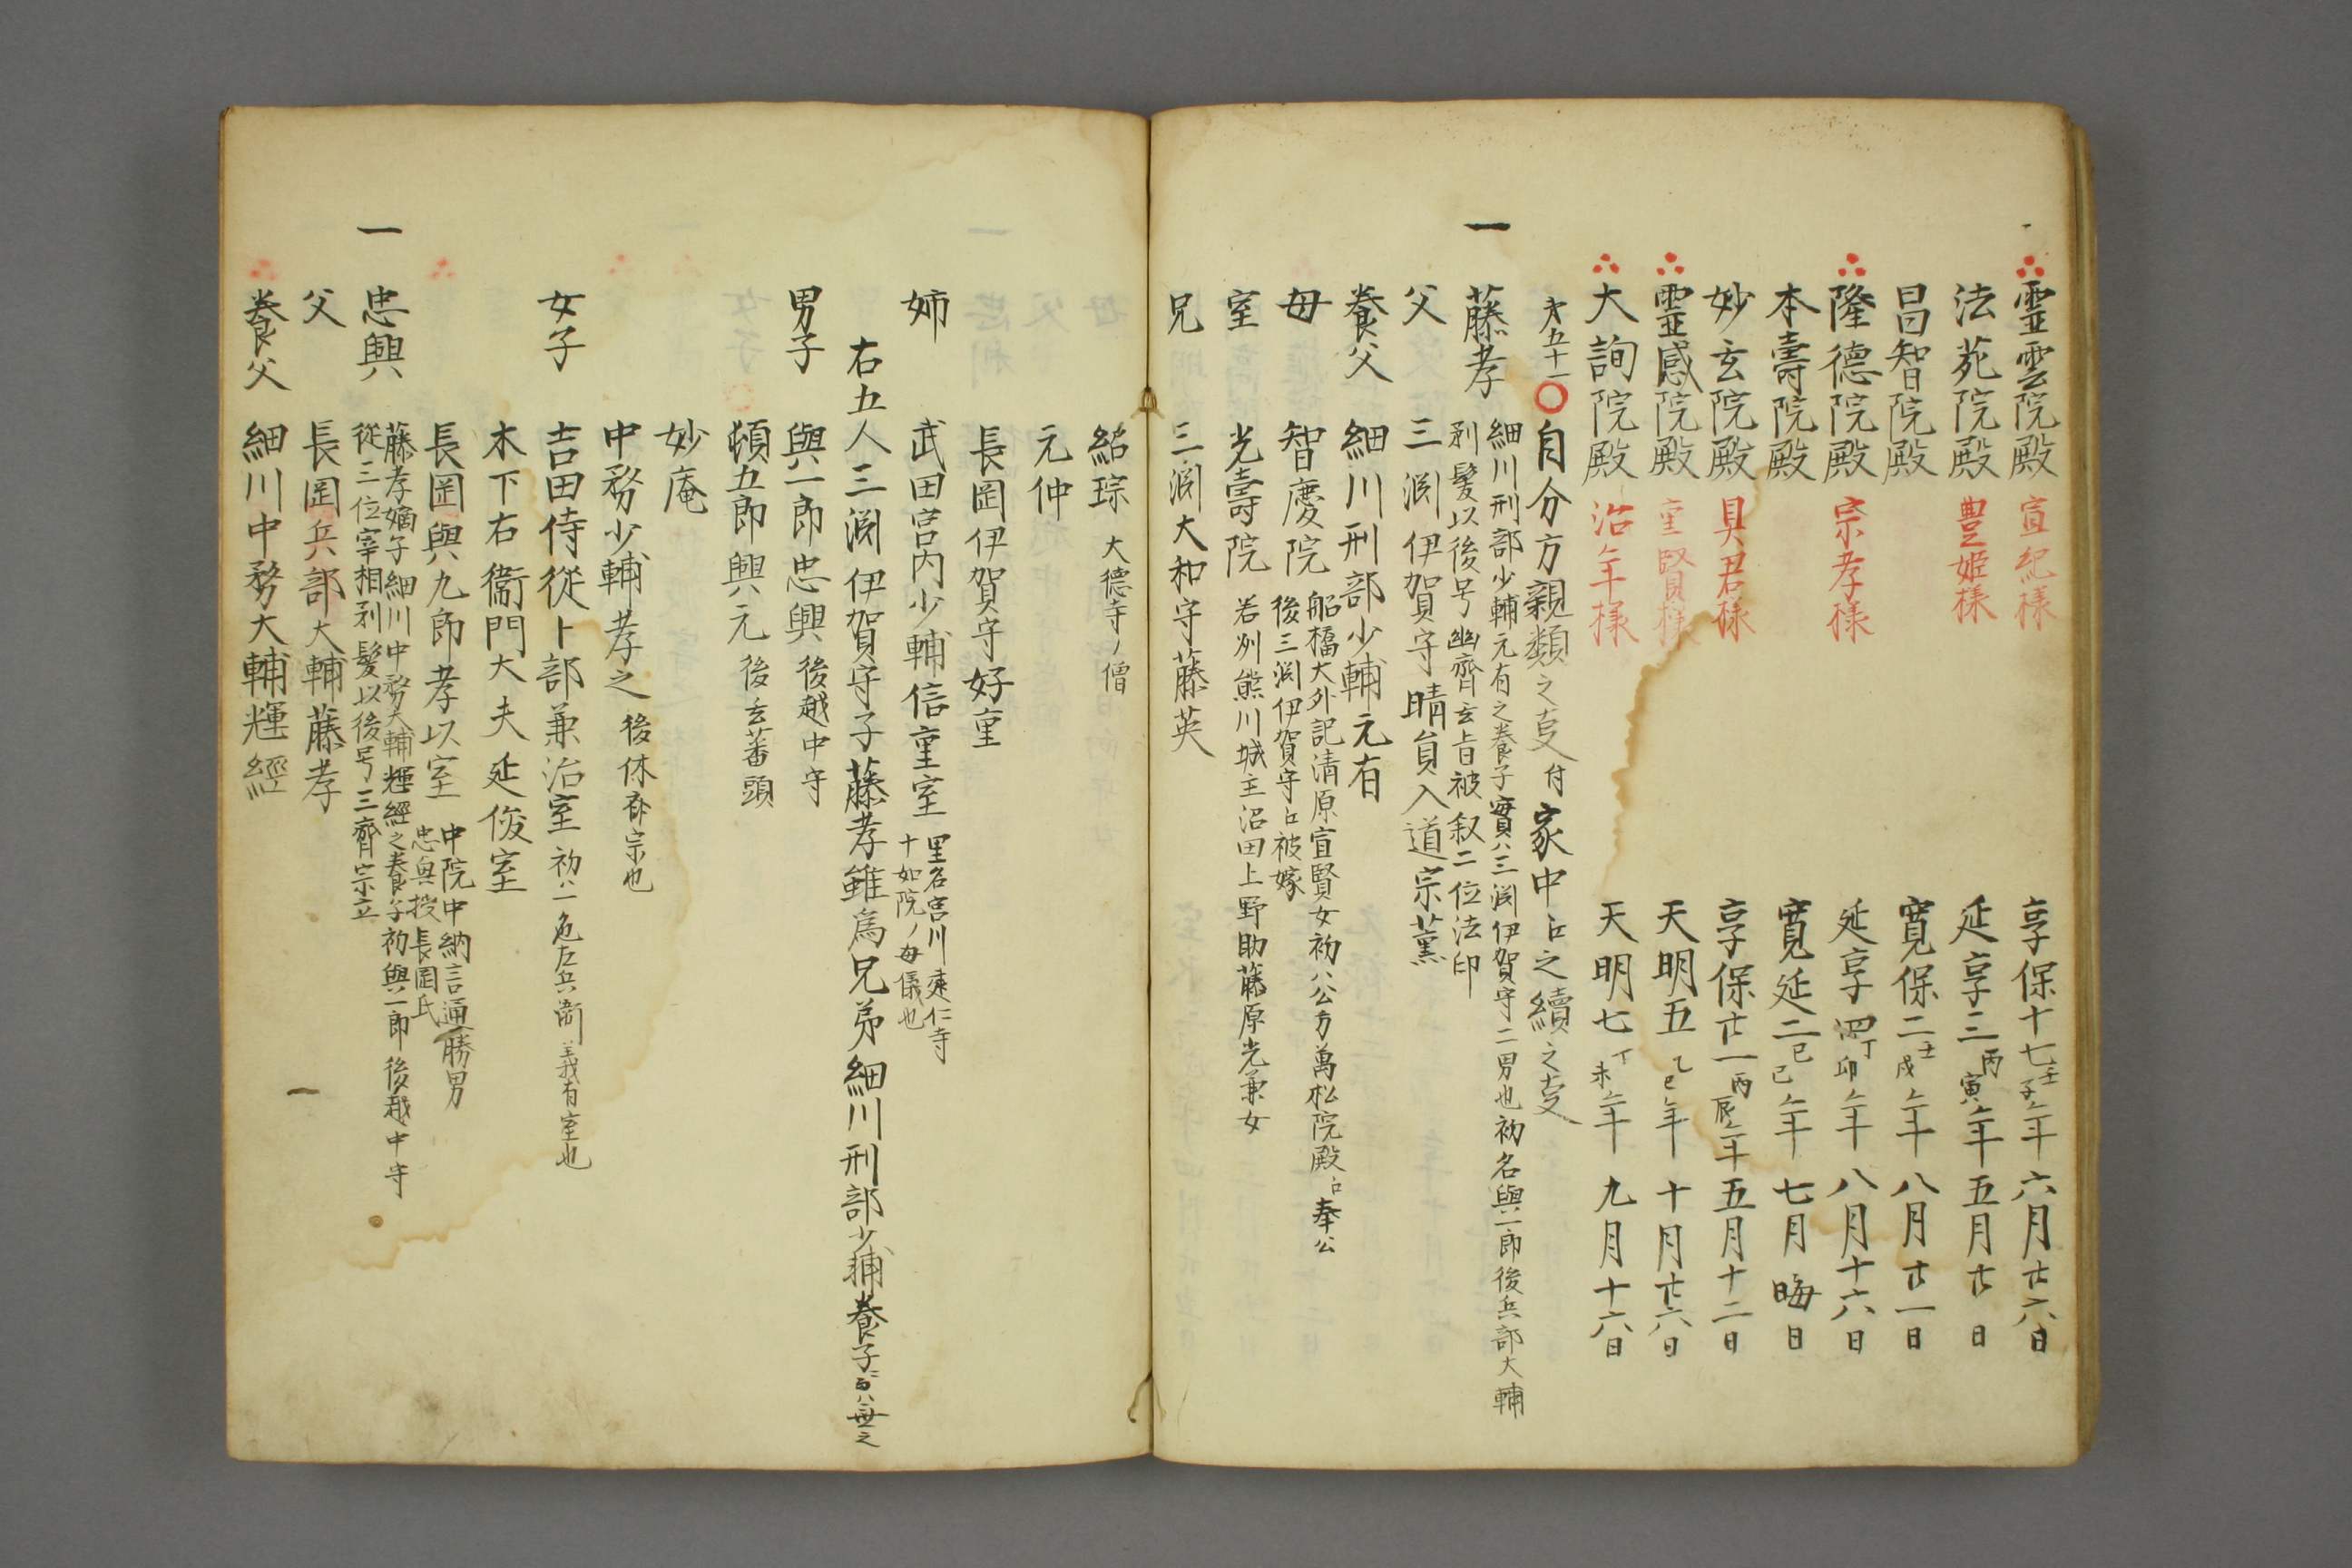 霊雲院殿 宣紀様 享保十七壬子年 六月廿六日
法苑院殿 豊姫様 延享三丙寅年 五月廿日
昌智院殿 寛保二壬戌年 八月廿一日
隆徳院殿 宗孝様 延享四丁卯年 八月十六日
本壽院殿 寛延二己巳年 七月晦日
妙玄院殿 具君様 享保廿一丙辰年 五月十二日
霊感院殿 重賢様 天明五乙巳年 十月廿六日
大詢院殿 治年様 天明七丁未年 九月十六日
才五十一 ○自分方親類之叓付家中ニ之續之叓
一 藤孝 細川刑部少輔元有之養子實ハ三渕伊賀守二男也初名與一郎後兵部大輔
剃髪以後号幽齊玄旨被叙二位法印
父 三渕伊賀守晴員入道宗薫
養父 細川刑部少輔元有
母 智慶院 船橋大外記清原宣賢女初ハ公方萬松院殿ニ奉公
後三渕伊賀守ニ被嫁
室 光壽院 若州熊川城主沼田上野助藤原光兼女
兄 三渕大和守藤英
紹琮 大徳寺ノ僧
元仲
長岡伊賀守好重
姉 武田宮内少輔信重室 里名宮川建仁寺
十如院ノ母儀也
右五人三渕伊賀守子藤孝雖為兄弟細川刑部少輔養子ニハ無之
男子 與一郎忠興 後越中守
頓五郎興元 後玄蕃頭
妙庵
中務少輔孝之 後休斎宗也
女子 吉田侍従卜部兼治室 初ハ一色左兵衛義有室也
木下右衞門大夫延俊室
長岡與九郎孝以室 中院中納言通勝男
忠興授長岡氏
一 忠興 藤孝嫡子細川中務大輔輝經之養子初與一郎後越中守
從三位宰相剃髪以後号三齊宗立
父 長岡兵部大輔藤孝
養父 細川中務大輔輝經